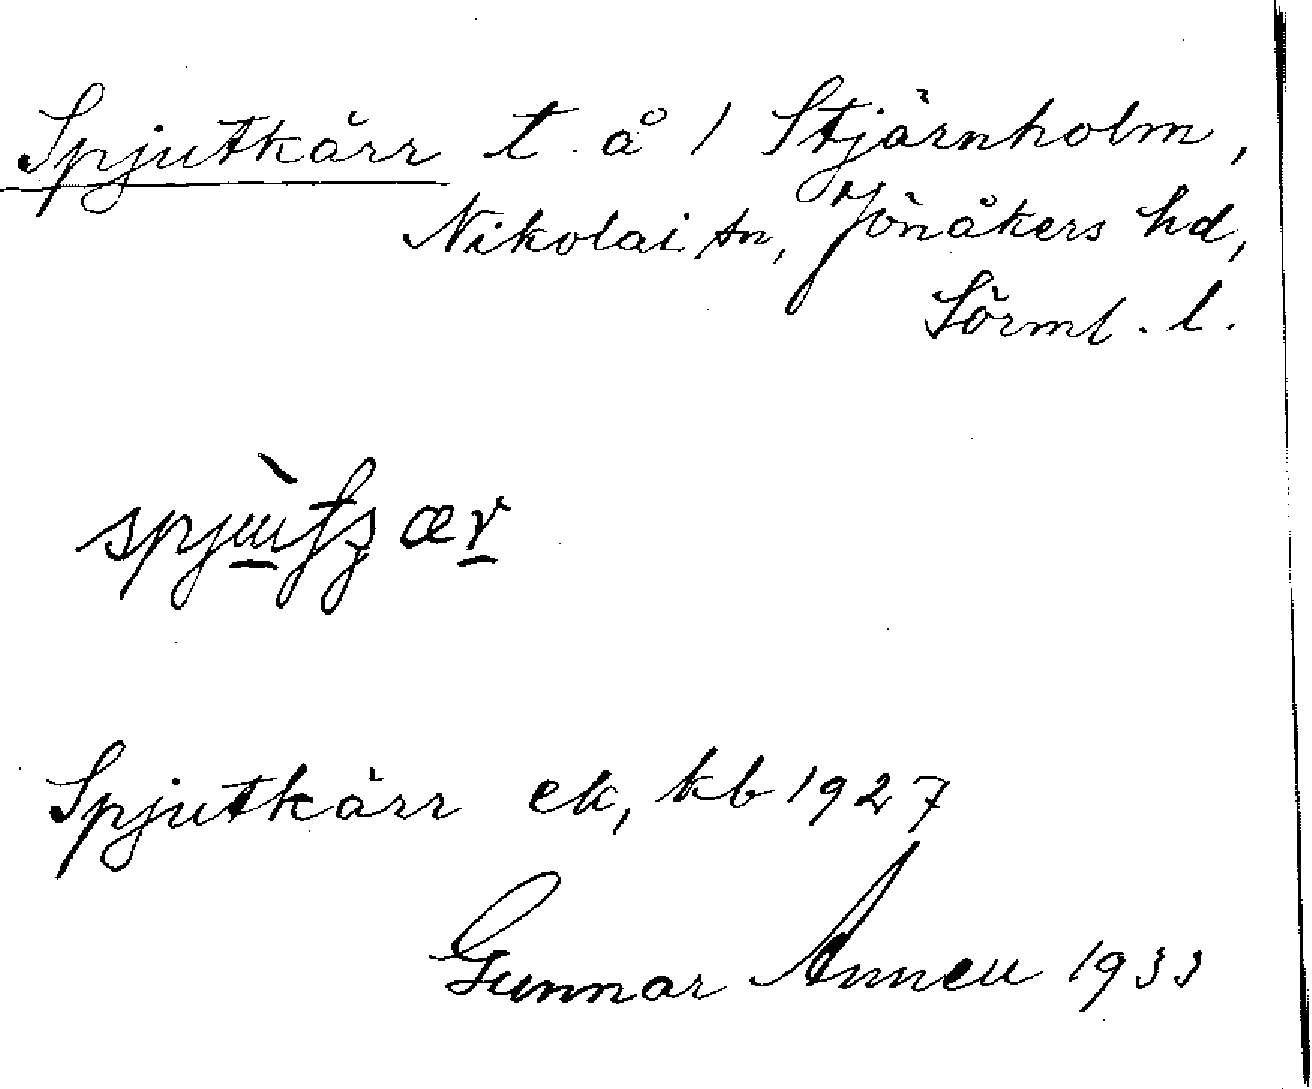 Spjutkärr t. å / Stjärnholm,
Nikolai sn, Jönåkers hd,
Sörml. l.
Spjutkärr ek, kb 1927
Gunnar 1933